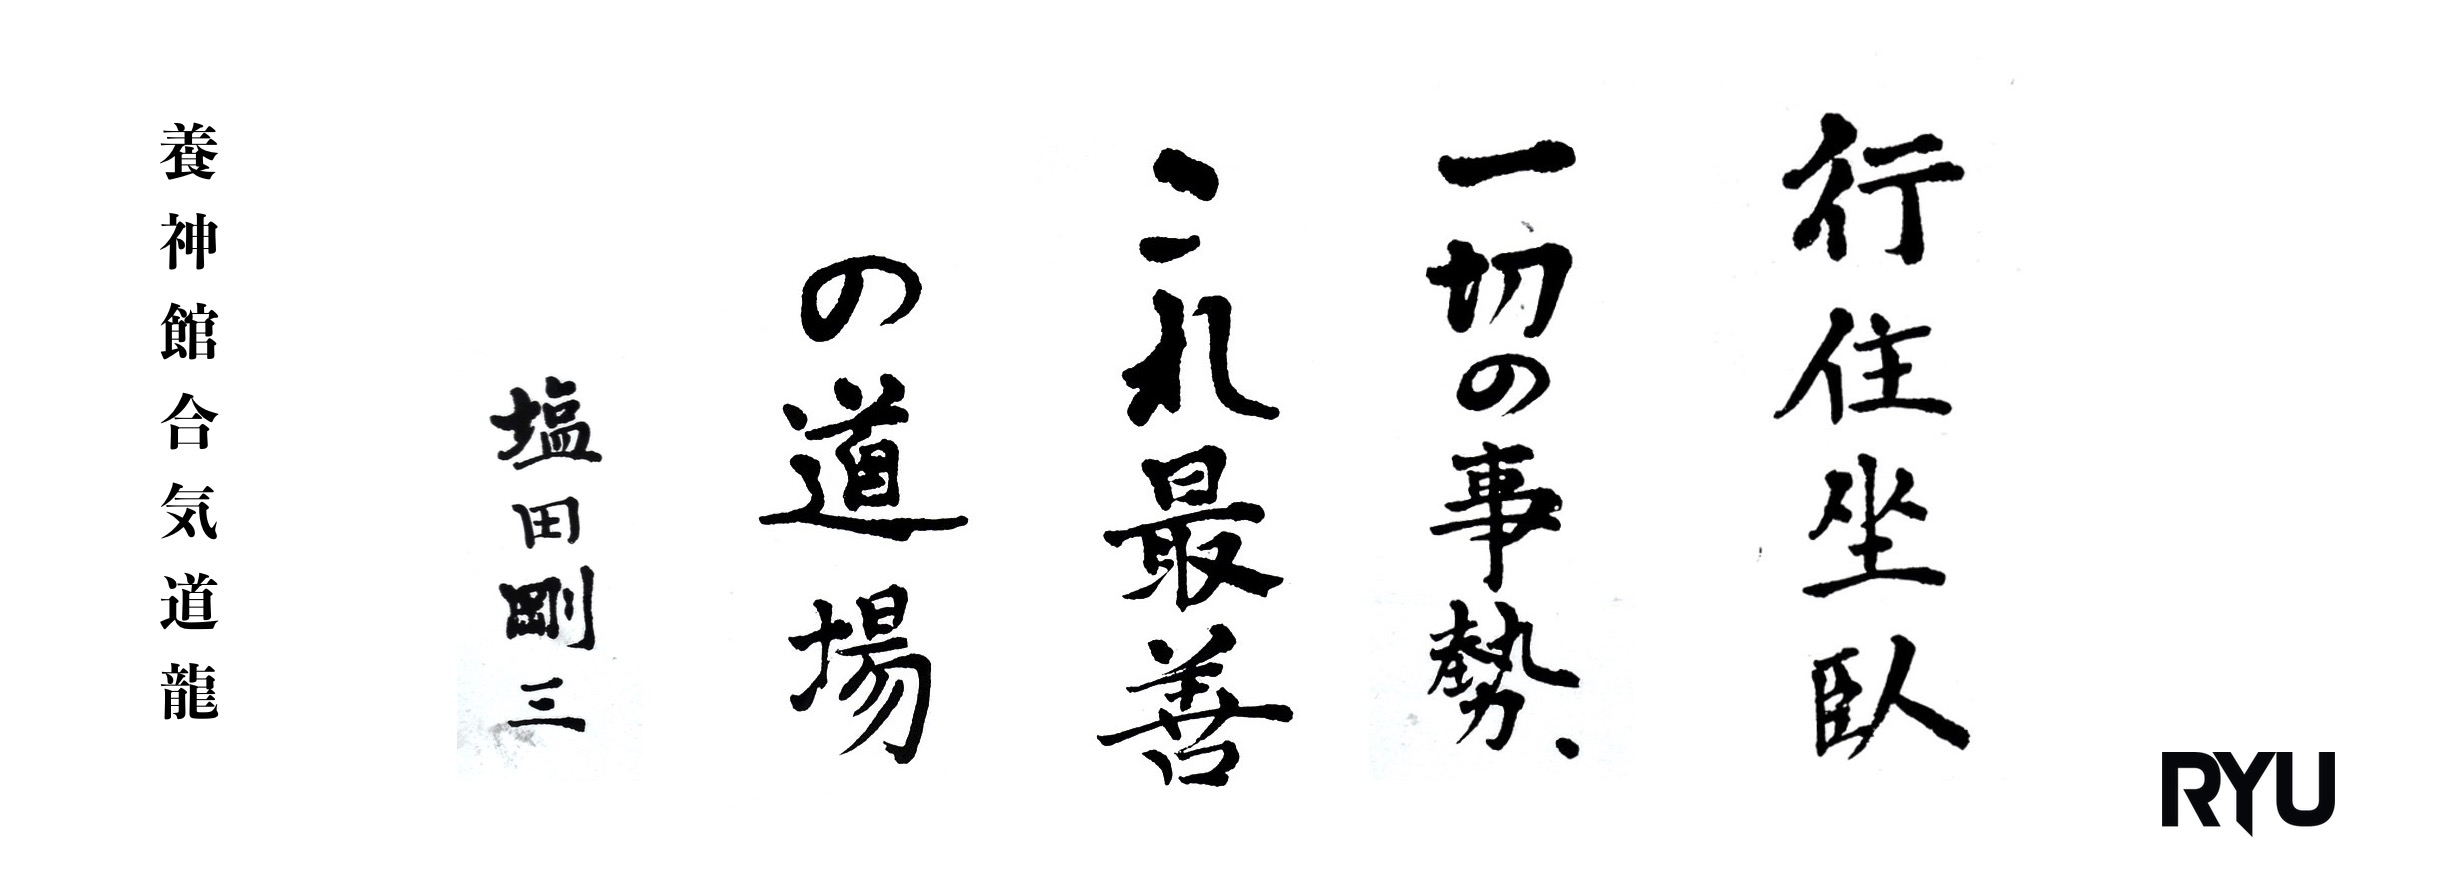 行住坐臥
一切の事勢、
これ最善
の道場
塩田剛三
養神館合気道龍
RYU